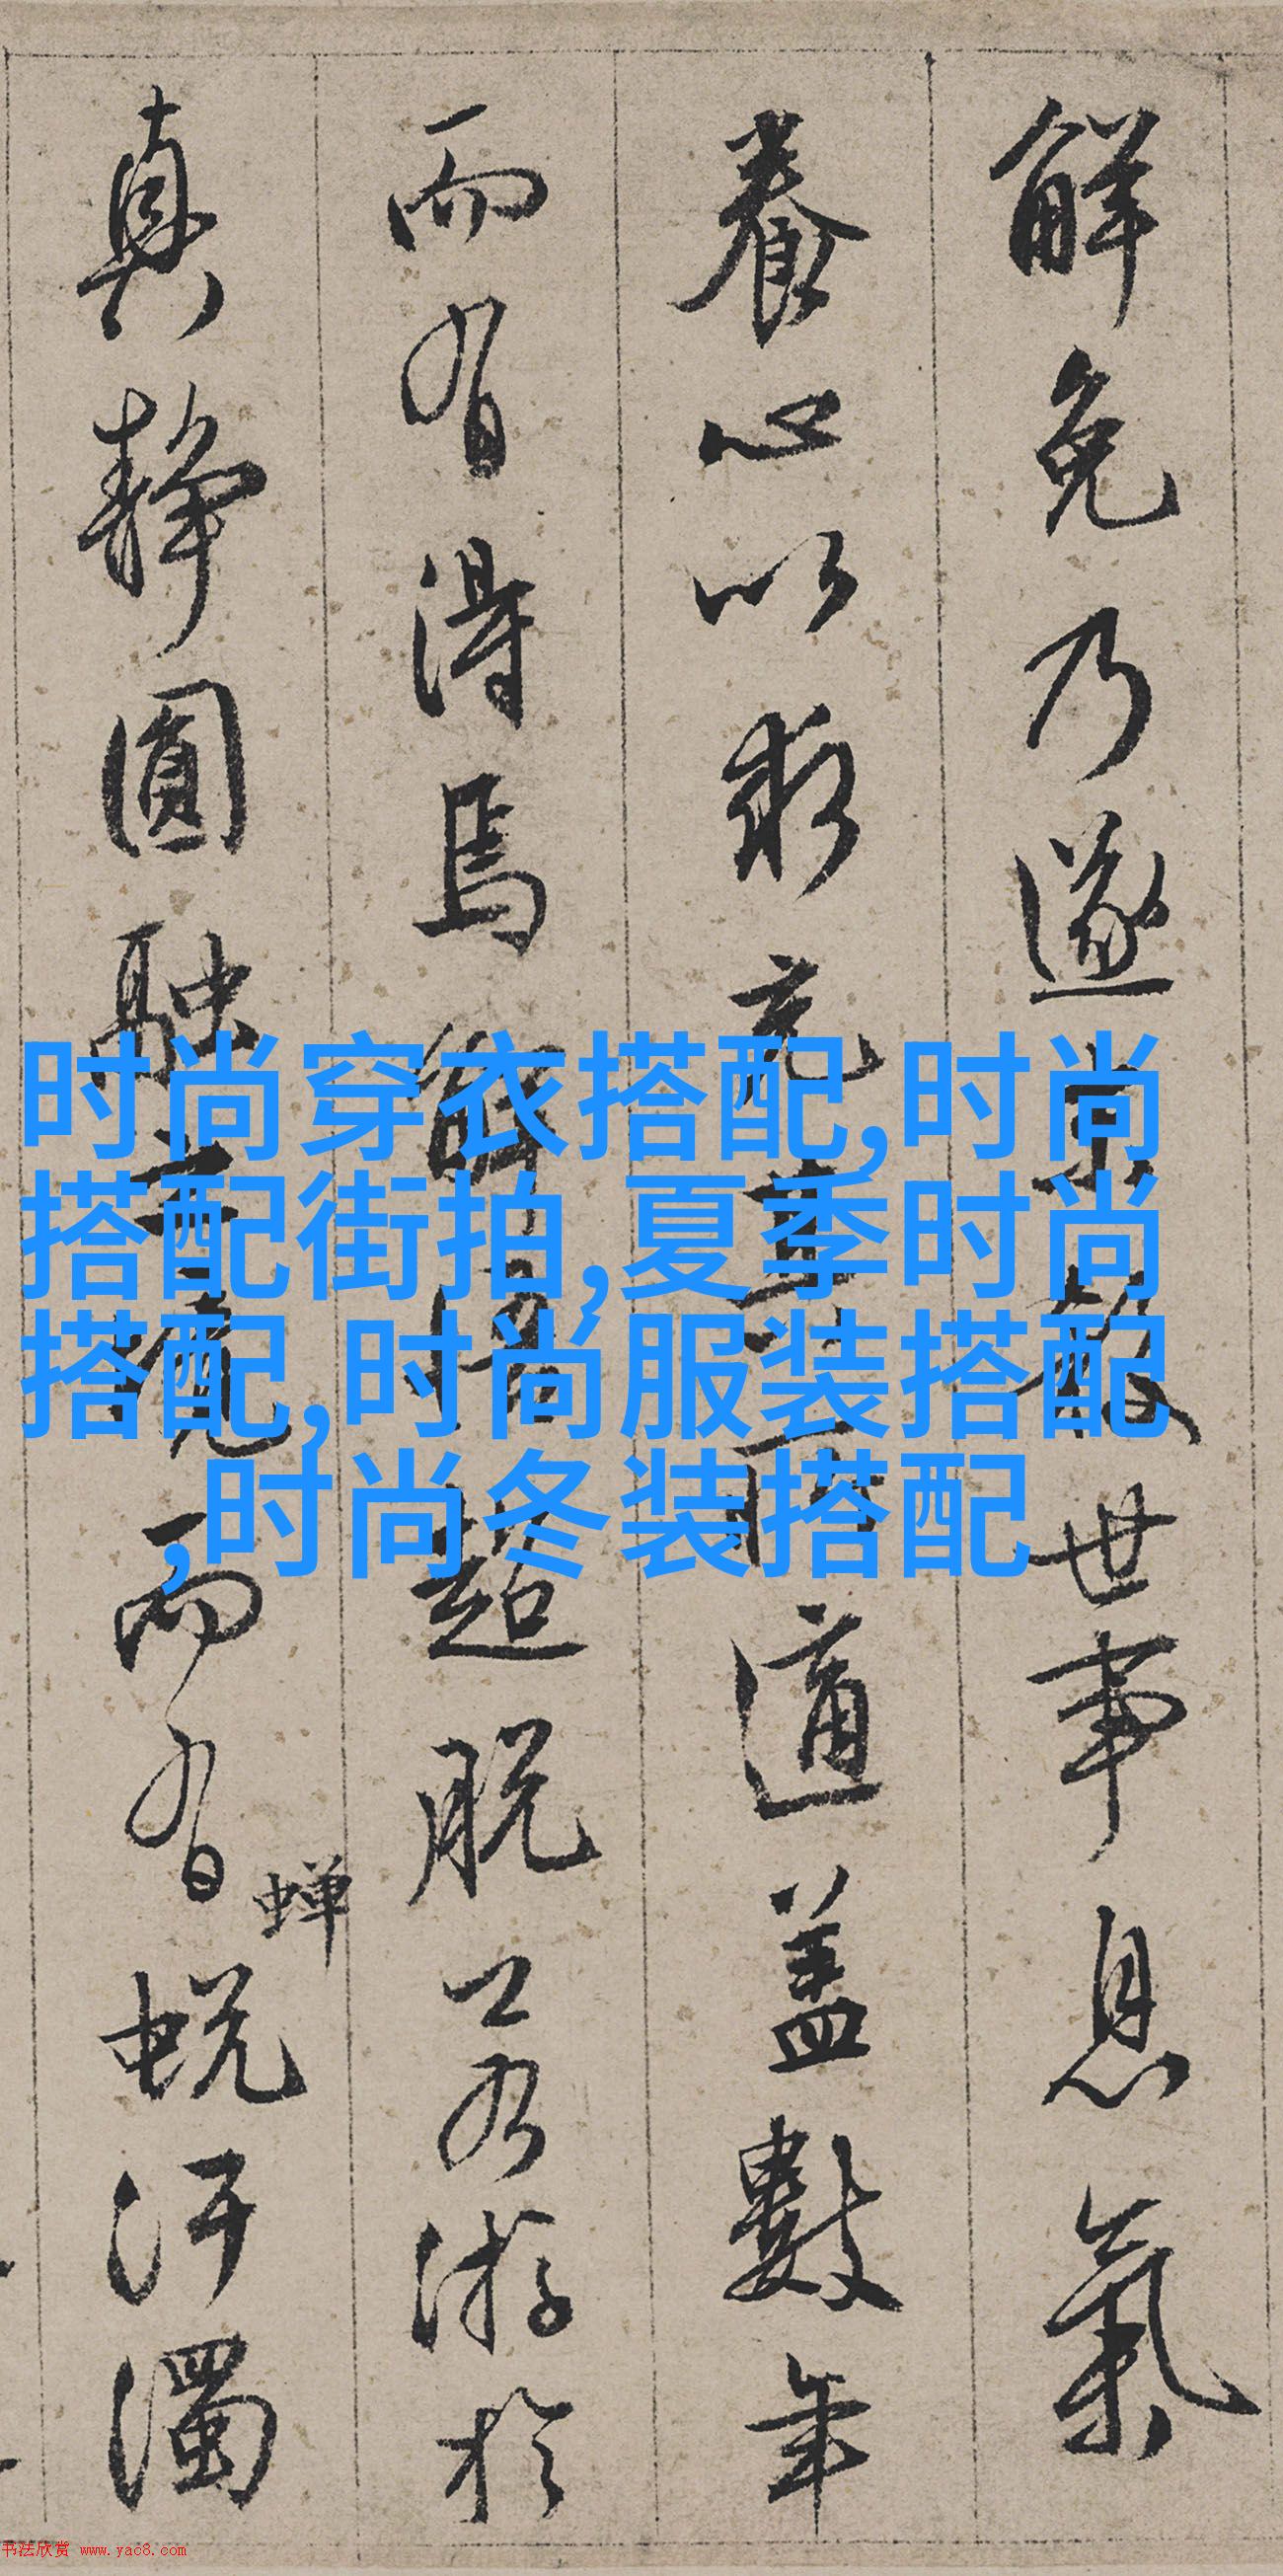 解免乃遂散世事息氣
養心以求充適蓋數年
而有得焉解超脫游於
真靜圓融而有蟬蛻汙濁
时尚穿衣搭配,时尚
搭配街拍,夏季时尚
搭配,时尚服装搭配
,时尚冬装搭配
书法欣赏 www.yac8.com